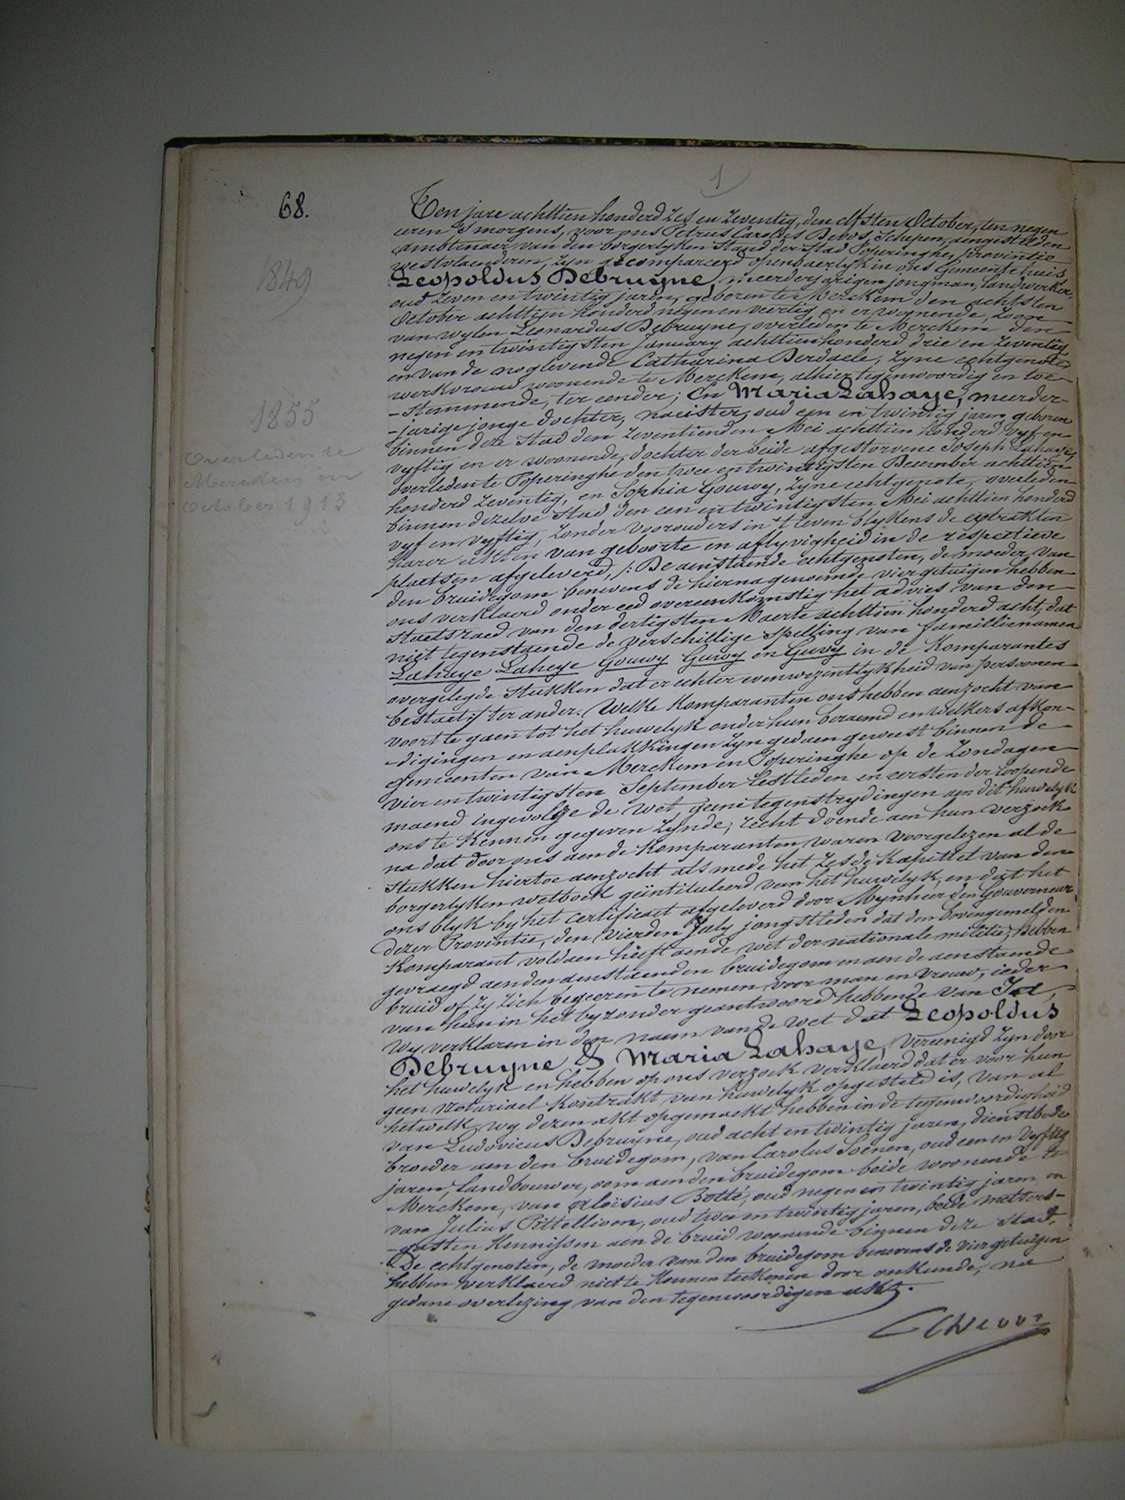 1
68.
1849
1855
Overleden te
Merckem in
October 1913
Ten jare achttien honderd zes en zeventig, den elfsten October, ten negen
uren 's morgens, voor ons Petrus Carolus Schepen, aengestelden
ambtenaer van den borgerlyken Stand der Stad Poperinghe, Provintie
westvlaenderen, zyn gecompareerd openbaerlyk in ons Gemeente huis
Leopoldus Debruyne, meerderjarigen jongman, landwerker,
oud zeven en twintig jaren, geboren te Merckem den achtsten
October achttien honderd negen en veertig en er woonende, zoon
van wylen Leonardus Debruyne, overleden te Merckem den
negen en twintigsten January achttien honderd drie en zeventig
en van de noglevende Catharina Berdaele, zyne echtgenote
werkvrouw woonende te Merckem, alhier tegenwoordig en toe-
-stemmende, ter eender; en Maria Lahaye, meerder-
-jarige jonge dochter, naeister, oud een en twintig jaren geboren
binnen deze Stad den zeventienden Mei achttien honderd vyf en
vyftig en er woonende, dochter der beide afgestorvene Joseph Lahaye,
overleden te Poperinghe den twee en twintigsten December achttien
honderd zeventig, en Sophia Gouwy, zyne echtgenote, overleden
binnen dezelve Stad den een en twintigsten Mei achttien honderd
vyf en vyftig, zonder voorouders in 't leven blykens de extrakten
harer akten van geboorte en aflyvigheid in de respective
plaetsen afgeleverd, /: De aenstaende echtgenoten, de moeder van
den bruidegom benevens de hierna genoemde vier getuigen hebben
ons verklaerd onder eed overeenkomstig het advies van den
Staetsraed van den dertigsten Maerte achttien honderd acht, dat
niet tegenstaende de verschillige spelling van familienamen
Lahaye Laheye Gouwy Guwy en Guvy in de Komparantes
overgelegde stukken dat er echter eenwezentlykheid van persoonen
bestaet :/ ter ander. Welke Komparanten ons hebben aenzocht van
voort te gaen tot het huwelyk onder hun beraemd en welkers afkon-
-digingen en aenplakkingen zyn gedaen geweest binnen de
gemeenten van Merckem en Poperinghe op de zondagen
vier en twintigsten September lestleden en eersten der loopende
maend ingevolge de wet geene tegenstrydingen aen dit huwelyk
ons te kennen gegeven zynde; recht doende aen hun verzoek
na dat door ons aen de Komparanten waren voorgelezen al de
stukken hiertoe aenzocht als mede het zesde Kapittel van den
borgerlyken wetboek geïntituleerd van het huwelyk, en dat het
ons blyk by het certificaet afgeleverd door Mynheer den Gouverneur
dezer Provintie, den vierden July jongstleden dat den bovengemelden
Komparant voldaen heeft aen de wet der nationale militie; hebben
gevraegd aen den aenstaenden bruidegom en aen de aenstaende
bruid of zy zich begeeren te nemen voor man en vrouw, ieder
van hun in het byzonder geantwoord hebbende van Ja,
wy verklaren in den naam van de wet dat Leopoldus
Debruyne & Maria Lahaye, vereenigd zyn door
het huwelyk en hebben op ons verzoek verklaerd dat er voor hun
geen notariael kontrakt van huwelyk opgesteld is, van al
hetwelk wy dezen akt opgemaekt hebben in de tegenwoordigheid
van Ludovicus Debruyne, oud acht en twintig jaren, dienstbode
broeder aen den bruidegom, van Carolus Soenen, oud een en vyftig
jaren, landbouwer, oom aen den bruidegom beide woonende te
Merckem, van Aloïsius Botté, oud negen en twintig jaren en
van Julius Pittellioen, oud twee en twintig jaren, beide metsers-
-gasten kennissen aen de bruid woonende binnen deze Stad.
De echtgenoten, de moeder van den bruidegom benevens de vier getuigen
hebben verklaerd niet te konnen teekenen door onkunde, na
gedane overlezing van den tegenwoordigen akt.